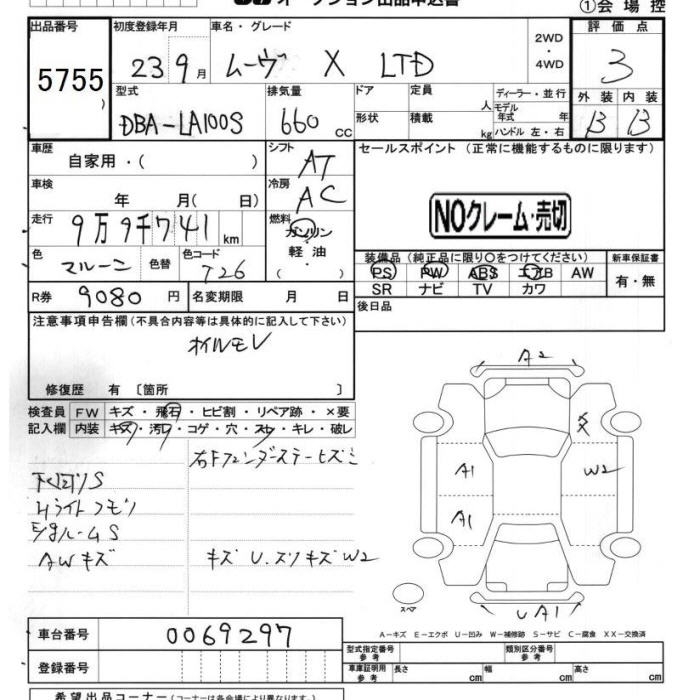 ①会場控
オークション出品申込書
出品番号 初度登録年月 車名・グレード 2WD ・ 4WD 評価点
5755 23 9月 ムーヴ X LTD 3
型式 排気量 ドア 定員 人 ディーラー・並行 外装 内装
DBA-LA100S 660 CC 形状 積載 kg モデル年式 年 ハンドル 左・右 B B
車歴 自家用・( ) シフト AT セールスポイント (正常に機能するものに限ります)
車検 年 月( 日) 冷房 AC
NOクレーム・売切
走行 9万9千741km 燃料 ガソリン 軽油 ( )
色 マルーン 色替 色コード T26
装備品 (純正品に限り○をつけてください) 新車保証書
PS PW ABS エアB AW 有・無
SR ナビ TV カワ
R券 9080円 名変期限 月 日 後日品
注意事項申告欄(不具合内容等は具体的に記入して下さい)
オイルモレ
修復歴 有 〔箇所 〕
検査員 FW キズ・飛石・ヒビ割・リペア跡・×要
記入欄 内装 キズ・汚レ・コゲ・穴・スレ・キレ・破レ
右Fフェンダーステーヒズミ
下回リS
Hライトクモリ
E/gルームS
AWキズ キズ U.スリキズW2
A2
X
A1 W2
A1
UA1
スペア
A-キズ E-エクボ U-凹み W-補修跡 S-サビ C-腐食 XX-交換済
車台番号 0069297
型式指定番号 参考 類別区分番号 参考
登録番号 車庫証明用 参考 長さ cm 幅 cm 高さ cm
希望出品コーナー(コーナーは各会場により異なります)